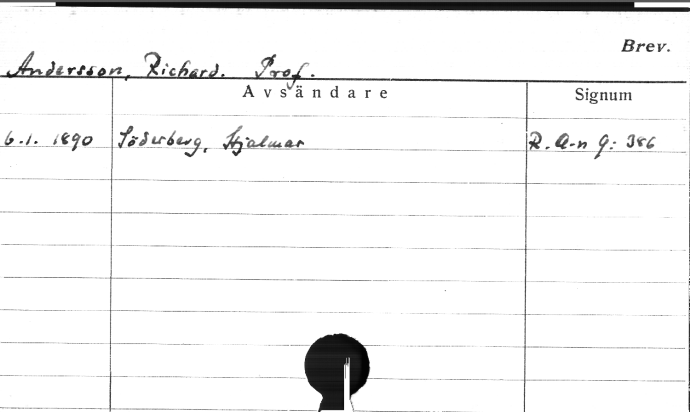 Brev.
Andersson, Richard. Prof.
Avsändare Signum
6.1. 1890 Söderberg, Hjalmar R. A-n 9: 386